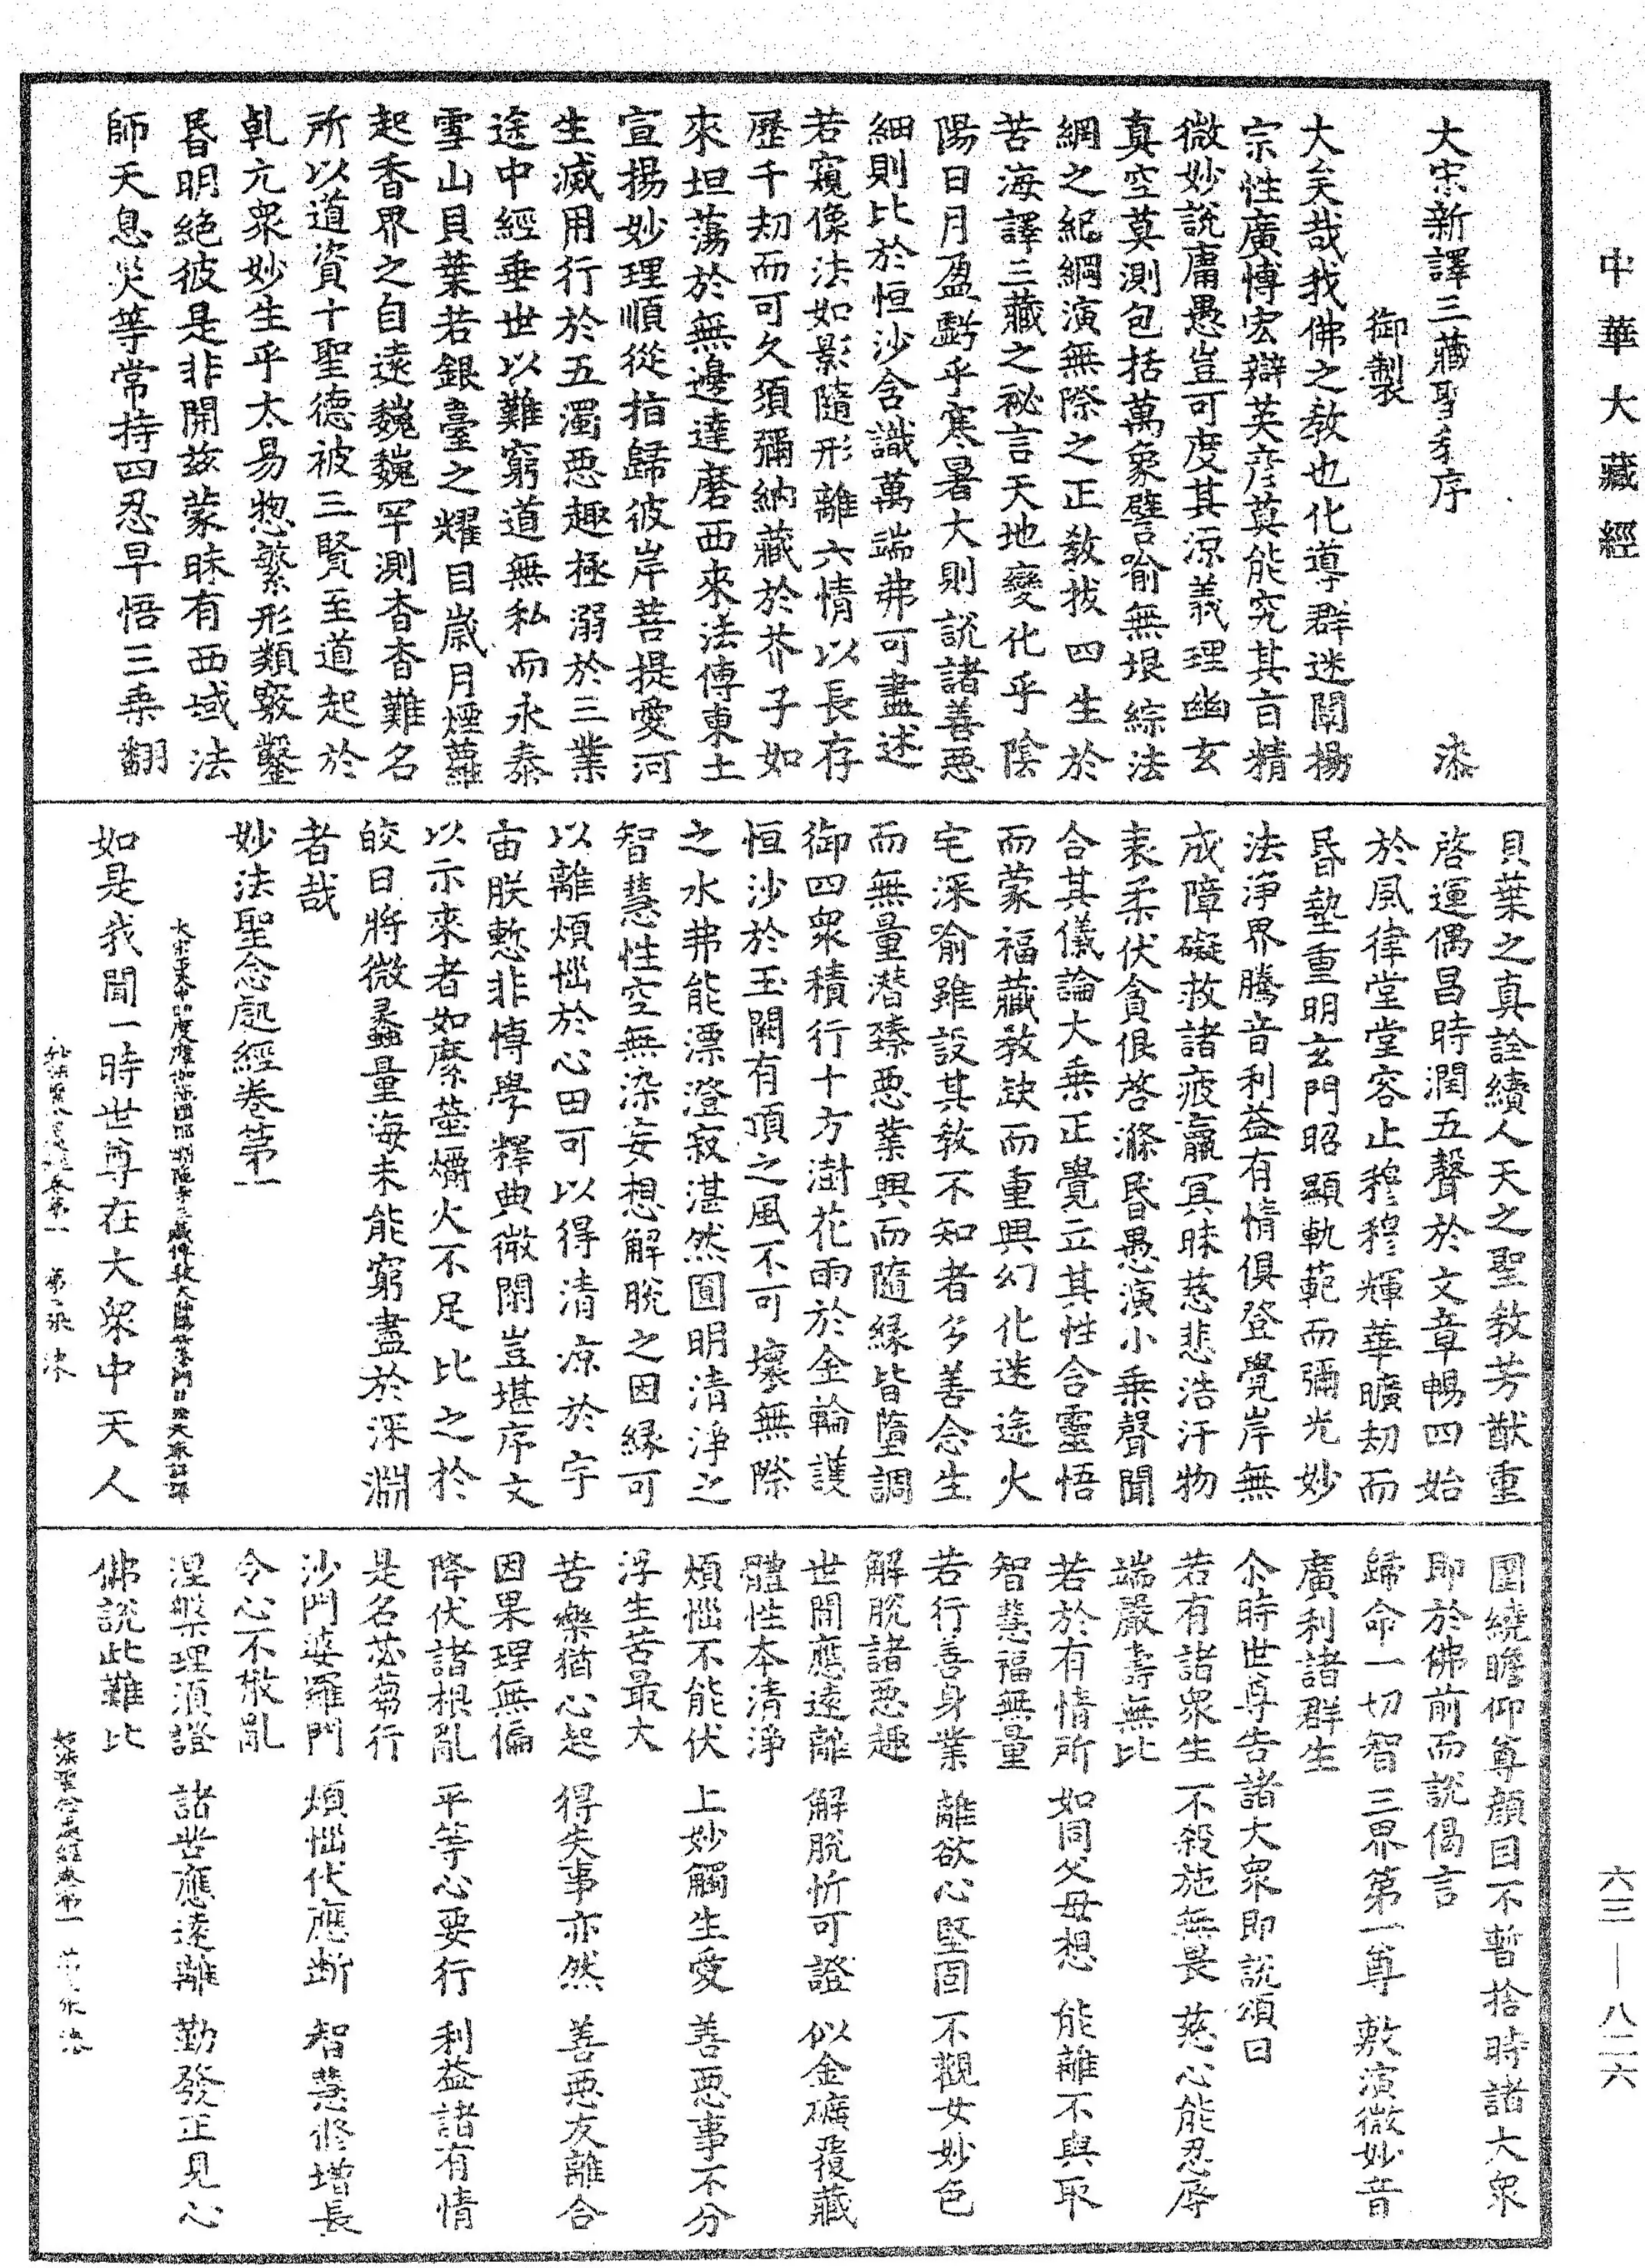 中華大藏經
六三—八二六
大宋新譯三藏聖教序
御製
大矣哉我佛之教也化導群迷闡揚
宗性廣博宏辯英彥莫能究其旨精
微妙說庸愚豈可度其源義理幽玄
真空莫測包括萬象譬喻無垠綜法
綱之紀綱演無際之正教拔四生於
苦海譯三藏之祕言天地變化乎陰
陽日月盈虧乎寒暑大則說諸善惡
細則比於恒沙含識萬端弗可盡述
若窺像法如影隨形離六情以長存
歷千劫而可久須彌納藏於芥子如
來坦蕩於無邊達磨西來法傳東土
宣揚妙理順從指歸彼岸菩提愛河
生滅用行於五濁惡趣極溺於三業
途中經垂世以難窮道無私而永泰
雪山貝葉若銀臺之耀目歲月煙蘿
起香界之自遠巍巍罕測杳杳難名
所以道資十聖德被三賢至道起於
乹元衆妙生乎太易惣繁形類竅鑿
昏明絕彼是非開兹蒙昧有西域法
師天息災等常持四忍早悟三乘翻
貝葉之真詮續人天之聖教芳猷重
啓運偶昌時潤五聲於文章暢四始
於風律堂堂容止穆穆輝華曠劫而
昏墊重明玄門昭顯軌範而彌光妙
法淨界騰音利益有情俱登覺岸無
成障礙救諸疲羸冥昧慈悲浩汗物
表柔伏貪佷啓滌昏愚演小乘聲聞
合其儀論大乘正覺立其性含靈悟
而蒙福藏教缺而重興幻化迷途火
宅深喻雖設其教不知者多善念生
而無量潛臻惡業興而隨緣皆墮調
御四衆積行十方澍花雨於金輪護
恒沙於玉闕有頂之風不可壞無際
之水弗能漂澄寂湛然圓明清淨之
智慧性空無染妄想解脫之因緣可
以離煩惱於心田可以得清涼於宇
宙朕慙非博學釋典微閑豈堪序文
以示來者如縻螢爝火不足比之於
皎日將微蠡量海未能窮盡於深淵
者哉
妙法聖念處經卷第一
如是我聞一時世尊在大衆中天人
圍繞瞻仰尊顏目不暫捨時諸大衆
即於佛前而說偈言
歸命一切智 三界第一尊 敷演微妙音
廣利諸群生
尒時世尊告諸大衆即說頌曰
若有諸衆生 不殺施無畏 慈心能忍辱
端嚴壽無比
若於有情所 如同父母想 能離不與取
智慧福無量
若行善身業 離欲心堅固 不觀女妙色
解脫諸惡趣
世間應遠離 解脫忻可證 似金礦覆藏
體性本清淨
煩惱不能伏 上妙觸生愛 善惡事不分
浮生苦最大
苦樂猶心起 得失事亦然 善惡友離合
因果理無偏
降伏諸根亂 平等心要行 利益諸有情
是名苾芻行
沙門婆羅門 煩惱代應斷 智慧修增長
令心不散亂
涅槃理須證 諸世應遠離 勤發正見心
佛說此難比